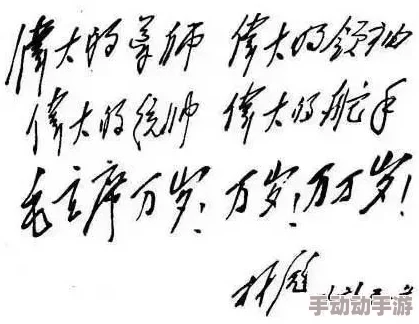 偉大的导师 偉大的领袖
偉大的统帅 偉大的舵手
毛主席万岁！万岁！万万岁！
林彪
手动动手游